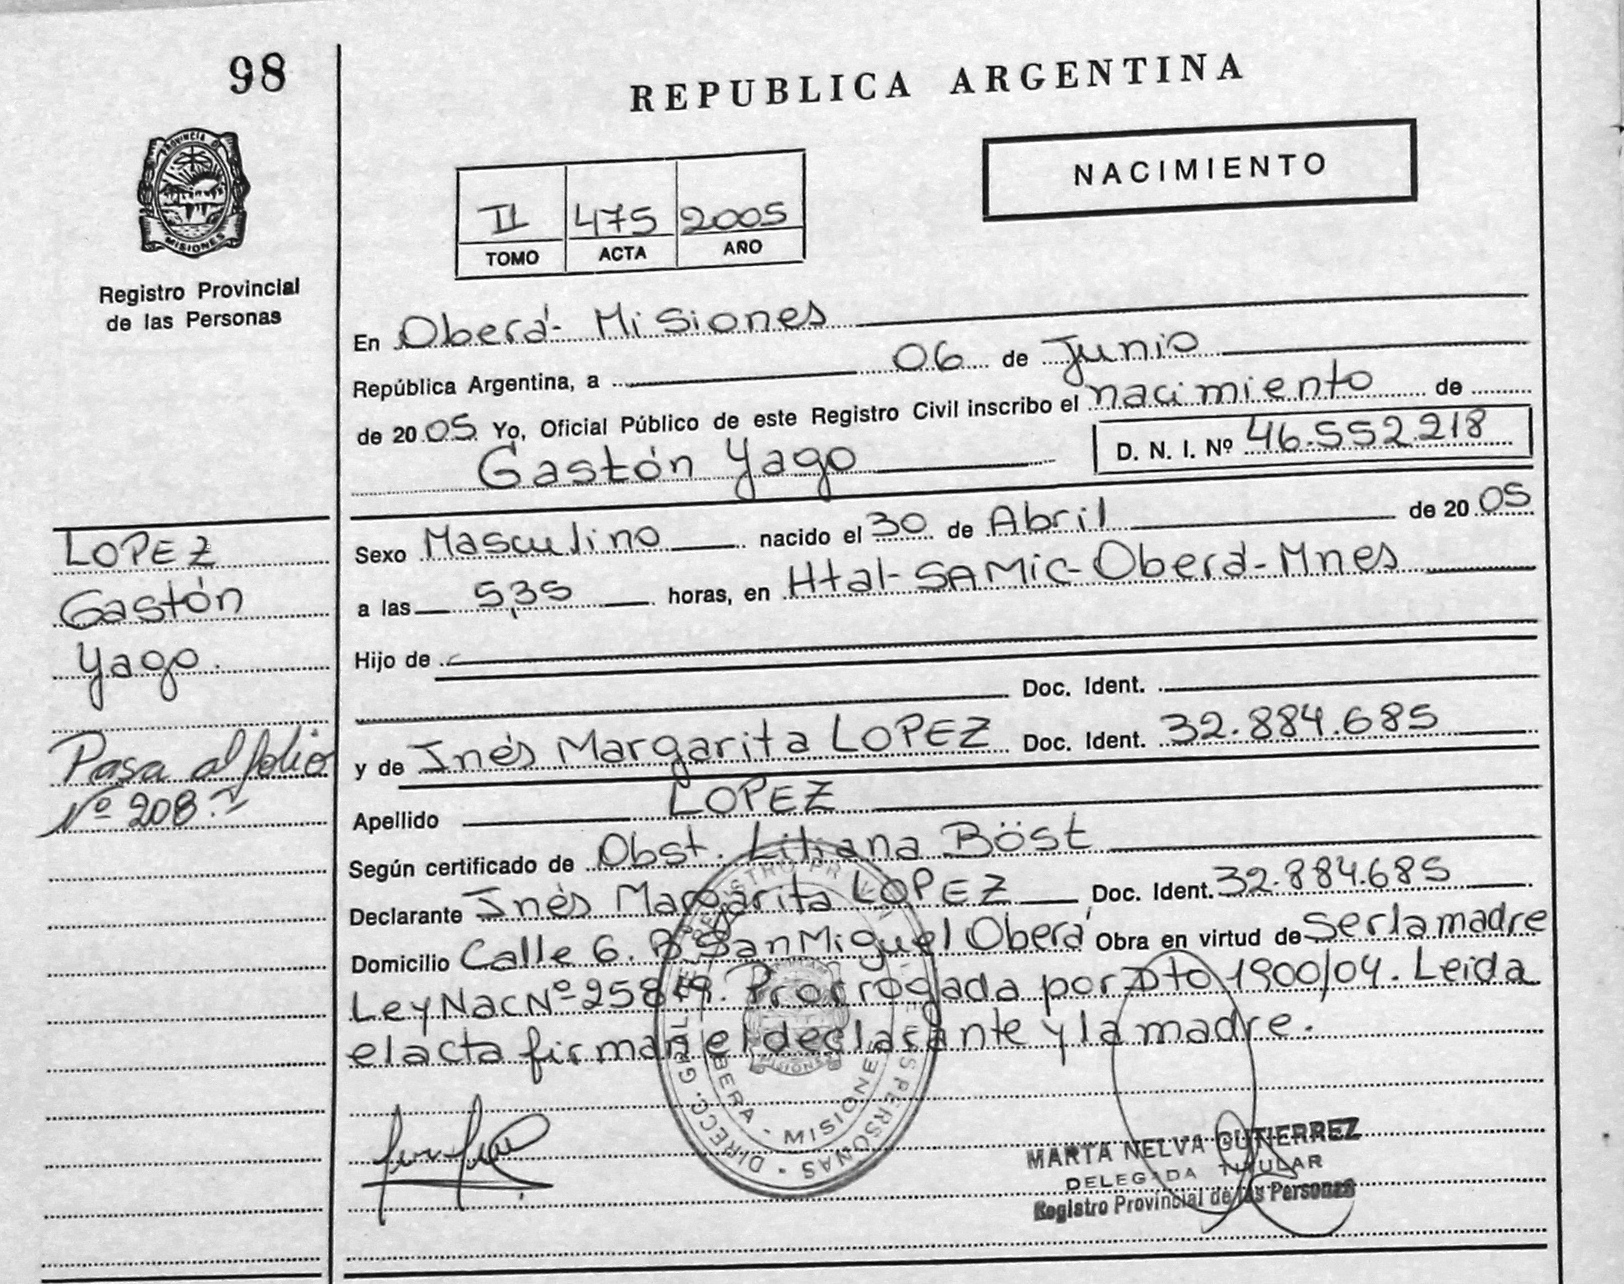 98
REPUBLICA ARGENTINA
PROVINCIA DE
MISIONES
NACIMIENTO
II 475 2005
TOMO ACTA AÑO
Registro Provincial
de las Personas
En Oberá- Misiones
República Argentina, a 06 de Junio
de 2005 Yo, Oficial Público de este Registro Civil inscribo el nacimiento de
Gastón Yago D. N. I. Nº 46.552.218
LOPEZ
Gastón
Yago.
Pasa al folio
Nº 208.
Sexo Masculino nacido el 30 de Abril de 2005
a las 5,35 horas, en Htal-SAMIC-Oberá-Mnes
Hijo de
Doc. Ident.
y de Inés Margarita LOPEZ Doc. Ident. 32.884.685
Apellido LOPEZ
Según certificado de Obst. Liliana Böst
Declarante Inés Margarita LOPEZ Doc. Ident. 32.884.685
Domicilio Calle 6. Bº San Miguel Oberá Obra en virtud de Ser la madre
Ley Nac Nº 25819. Prorrogada por Dto 1900/04. Leida
el acta firman el declarante y la madre.
DIRECC. GRAL. DE REGISTRO PROVINCIAL DE LAS PERSONAS
OBERA - MISIONES
MARTA NELVA GUTIERREZ
DELEGADA TITULAR
Registro Provincial de las Personas